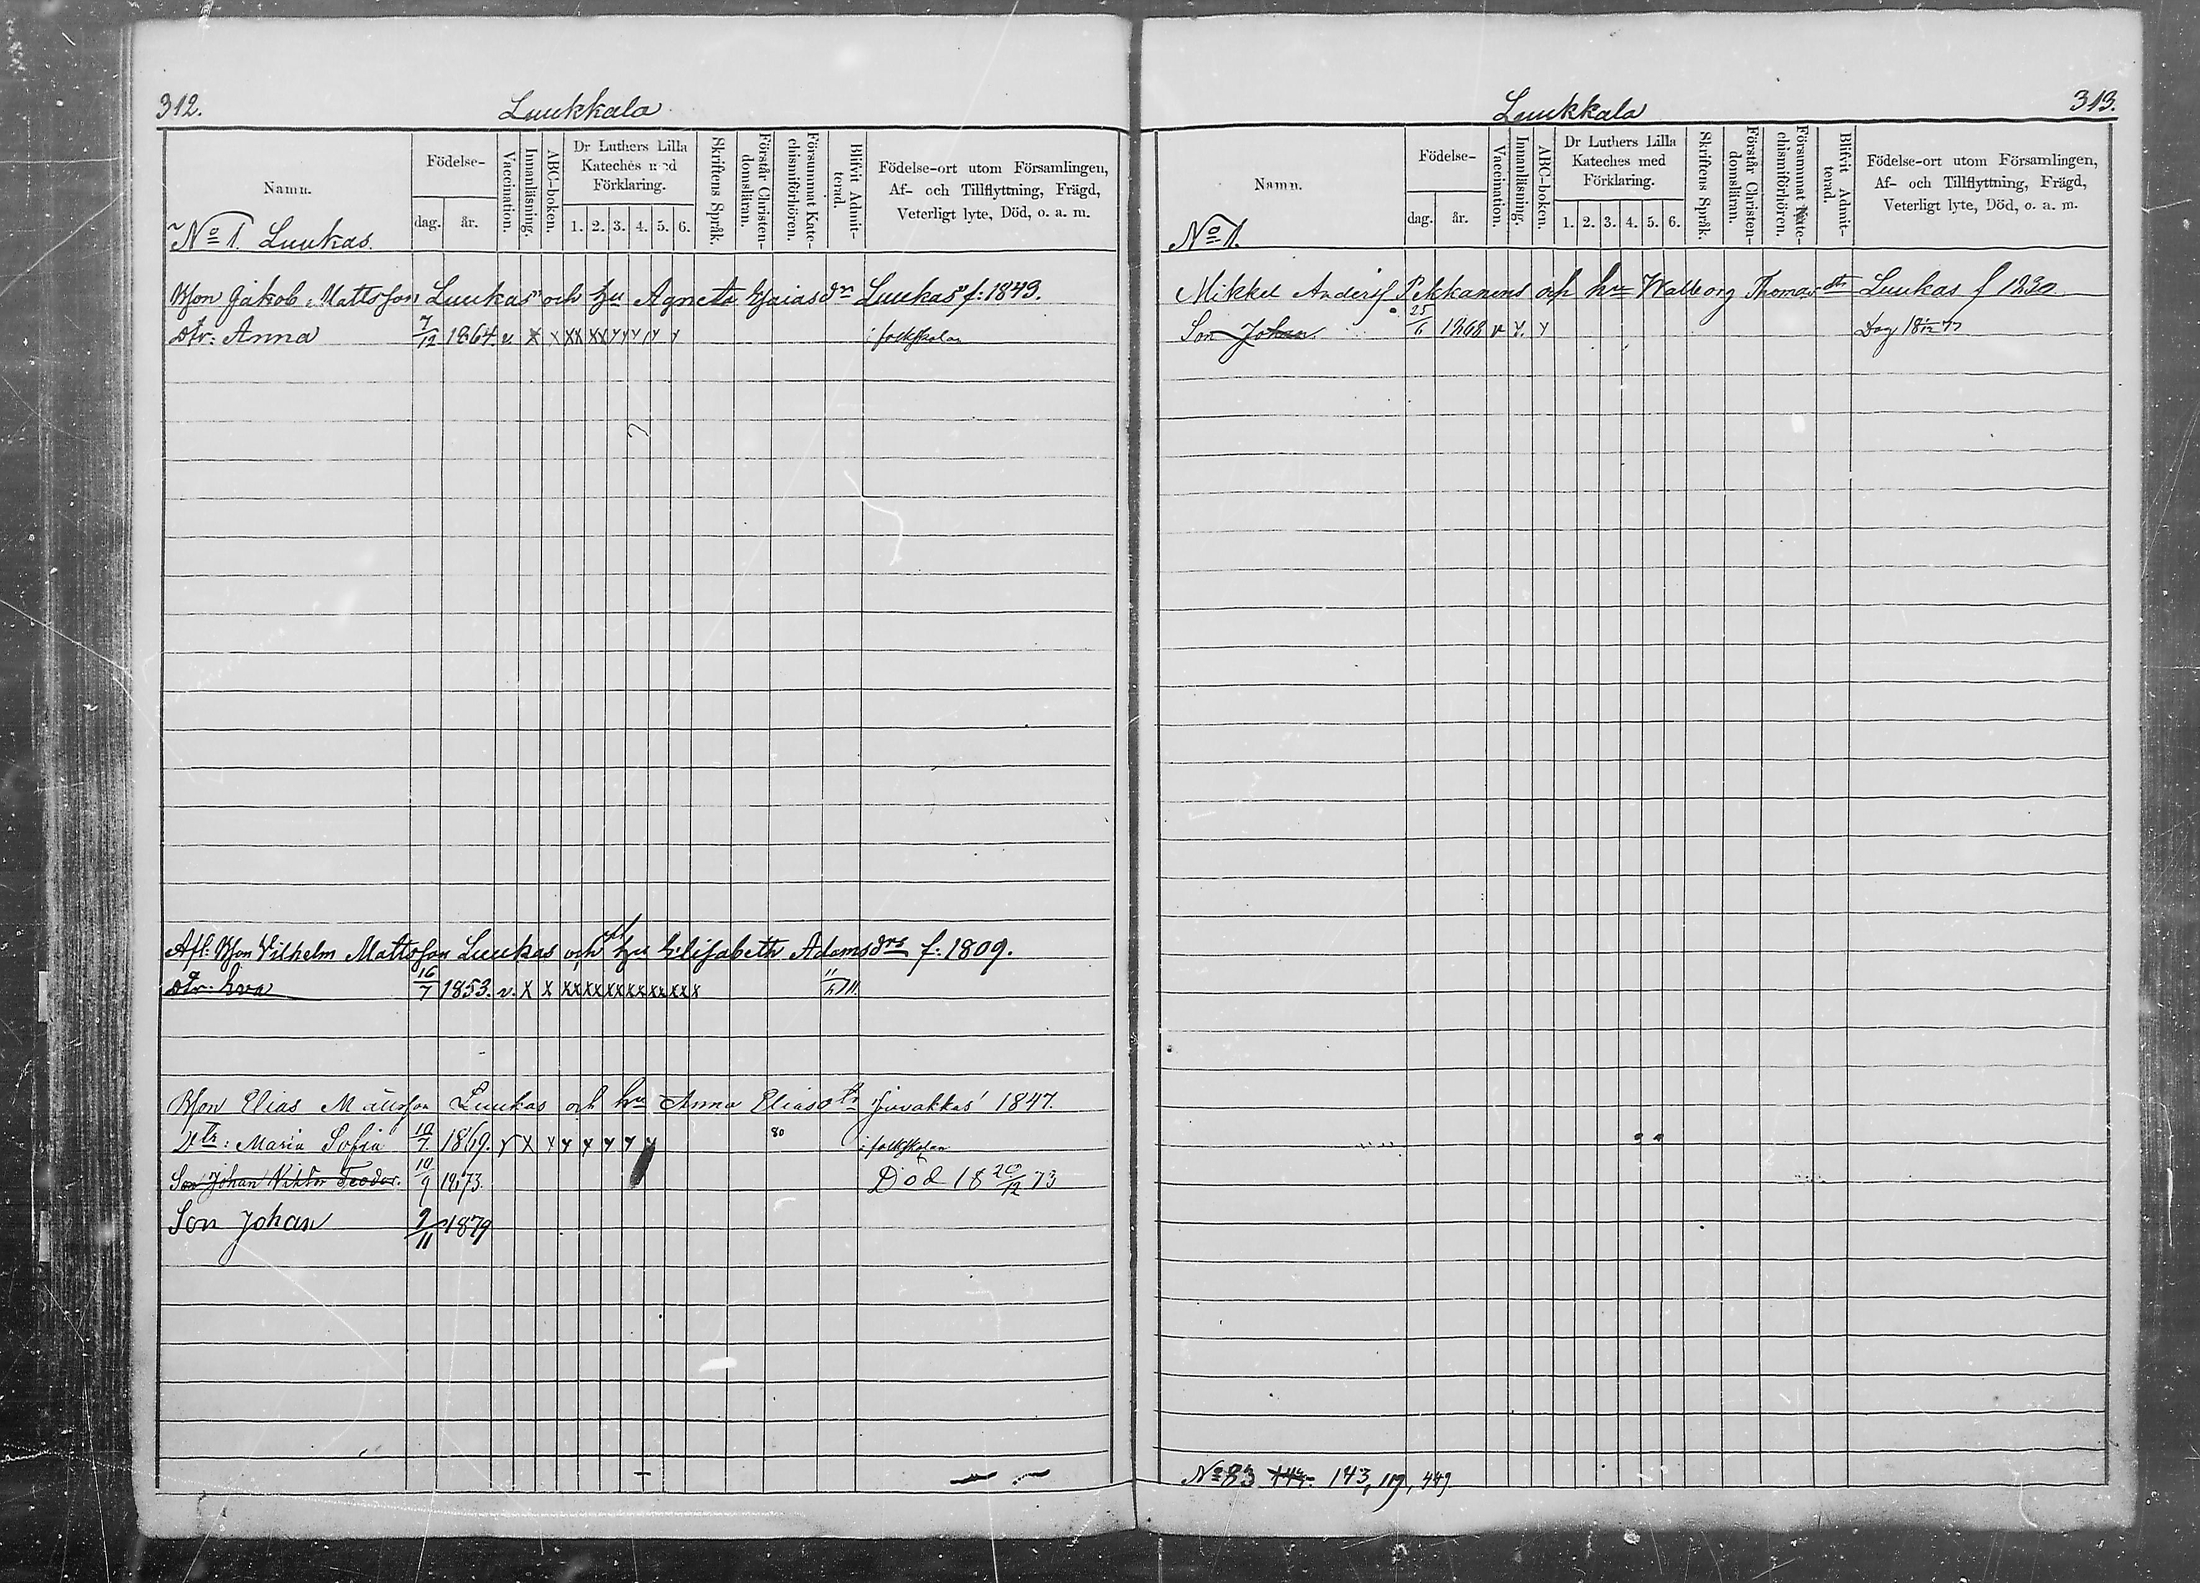 312.
Luukkala
Namn.
Födelse-
dag. år.
Vaccination.
Innanläsning.
ABC-boken.
Dr Luthers Lilla
Kateches med
Förklaring.
1. 2. 3. 4. 5. 6.
Skriftens Språk.
Förstår Christen-
domsläran.
Försummat Kate-
chismiförhören.
Blifvit Admit-
terad.
Födelse-ort utom Församlingen,
Af- och Tillflyttning, Frägd,
Veterligt lyte, Död, o. a. m.
No 1. Luukas.
Bson Jakob Mattsson Luukas och hu Agneta Esaias dr Luukas f: 1843.
Dtr: Anna 7/12 1864. v. x x xx xx y y y y y i folkskolan
Afl: Bson Vilhelm Mattsson Luukas och hu Elisabeth Adamsdrs f: 1809.
Dtr: Eva 16/7 1853. v. x x xx xx xx xx xx xx
Bson Elias Mattsson Luukas och hu Anna Eliasdtr Juvakkas' 1847.
Dtr: Maria Sofia 10/7. 1869. y x y y y y y y 80 i folkskolan
Son Johan Viktor Teodor. 10/9 1873. Död 18 20/12 73
Son Johan 9/11 1879
313.
Luukkala
Namn.
Födelse-
dag. år.
Vaccination.
Innanläsning.
ABC-boken.
Dr Luthers Lilla
Kateches med
Förklaring.
1. 2. 3. 4. 5. 6.
Skriftens Språk.
Förstår Christen-
domsläran.
Försummat Kate-
chismiförhören.
Blifvit Admit-
terad.
Födelse-ort utom Församlingen,
Af- och Tillflyttning, Frägd,
Veterligt lyte, Död, o. a. m.
No 1.
Mikkel Andersf Pekkanens och hu Walborg Thomas dtr Luukas f 1830
Son Johan 25/6 1868 v y. y
No 83 144. 143, 119, 449